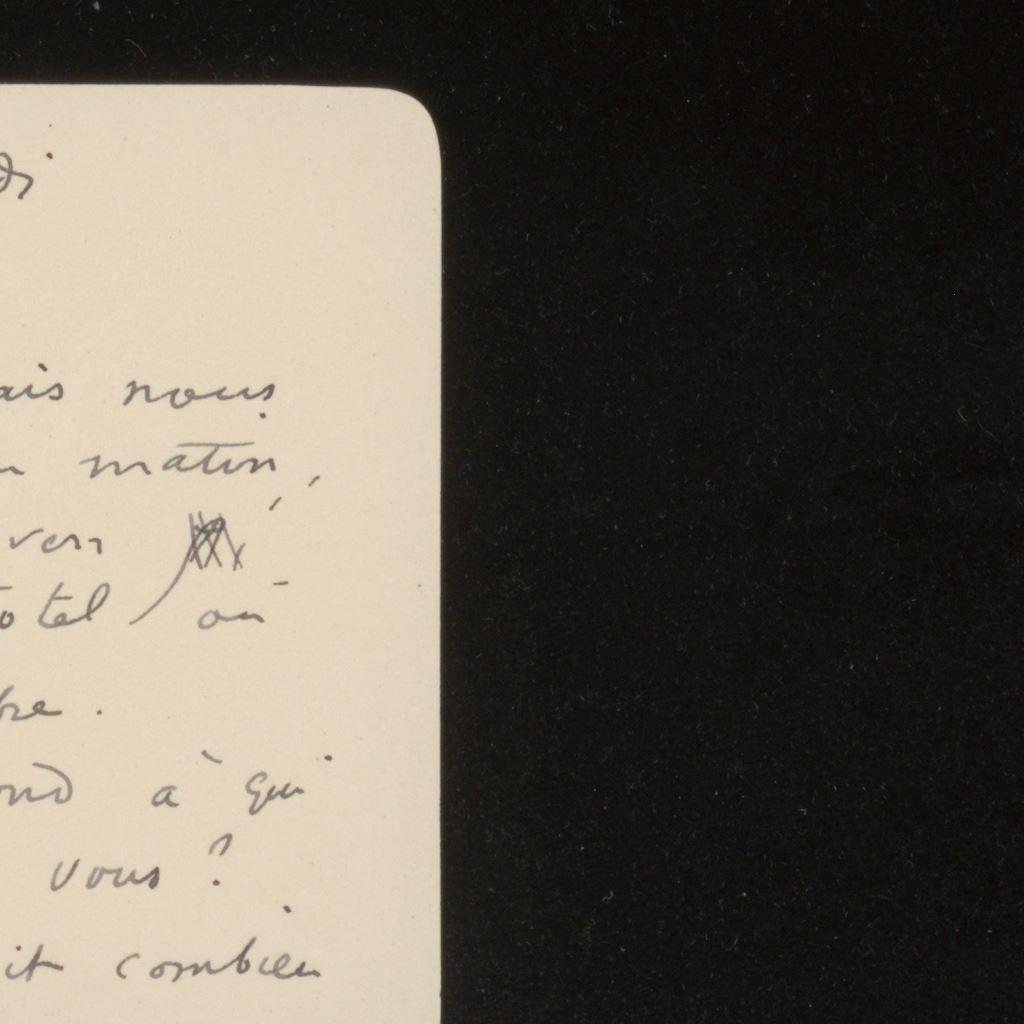 di
ais nous
matin,
otel où
bre.
ond à qui
vous ?
it combien